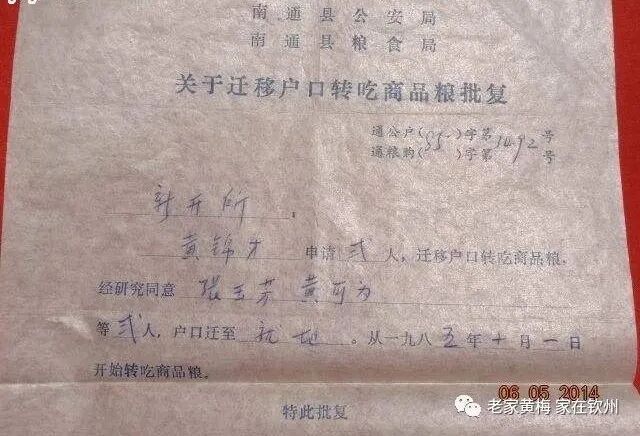 南通县公安局
南通县粮食局
关于迁移户口转吃商品粮批复
通公户(85)字第1492号
通粮购(85)字第 号
新开所：
黄锦才 申请 贰 人，迁移户口转吃商品粮。
经研究同意 张玉芳 黄可为
等 贰 人，户口迁至 就地 。从一九八五年十月一日
开始转吃商品粮。
特此批复
06 05 2014
老家黄梅 家在钦州